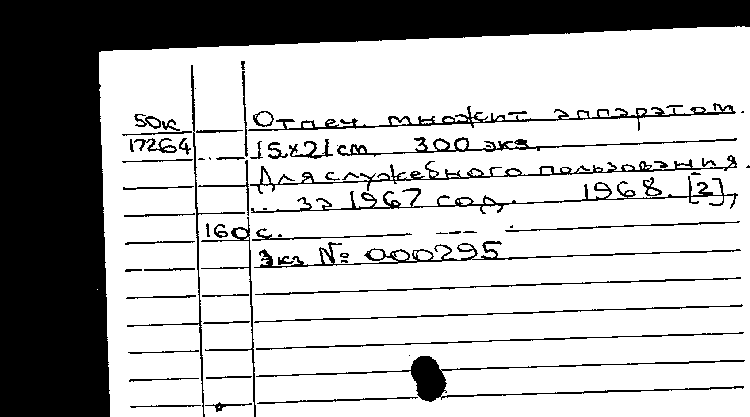 50к Отпеч. множит. аппаратом.
17264 15x21 см. 300 экз.
Для служебного пользования.
.. за 1967 год. 1968. [2],
160 с.
Экз № 000295